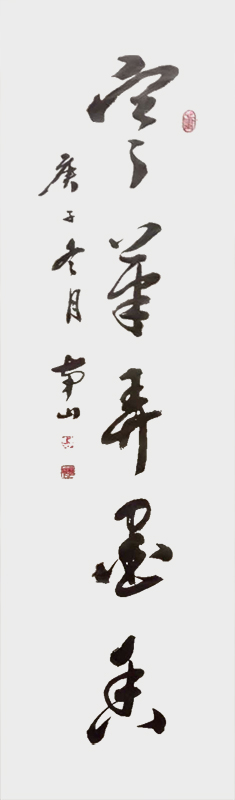 筆弄墨香
庚子冬月 南山